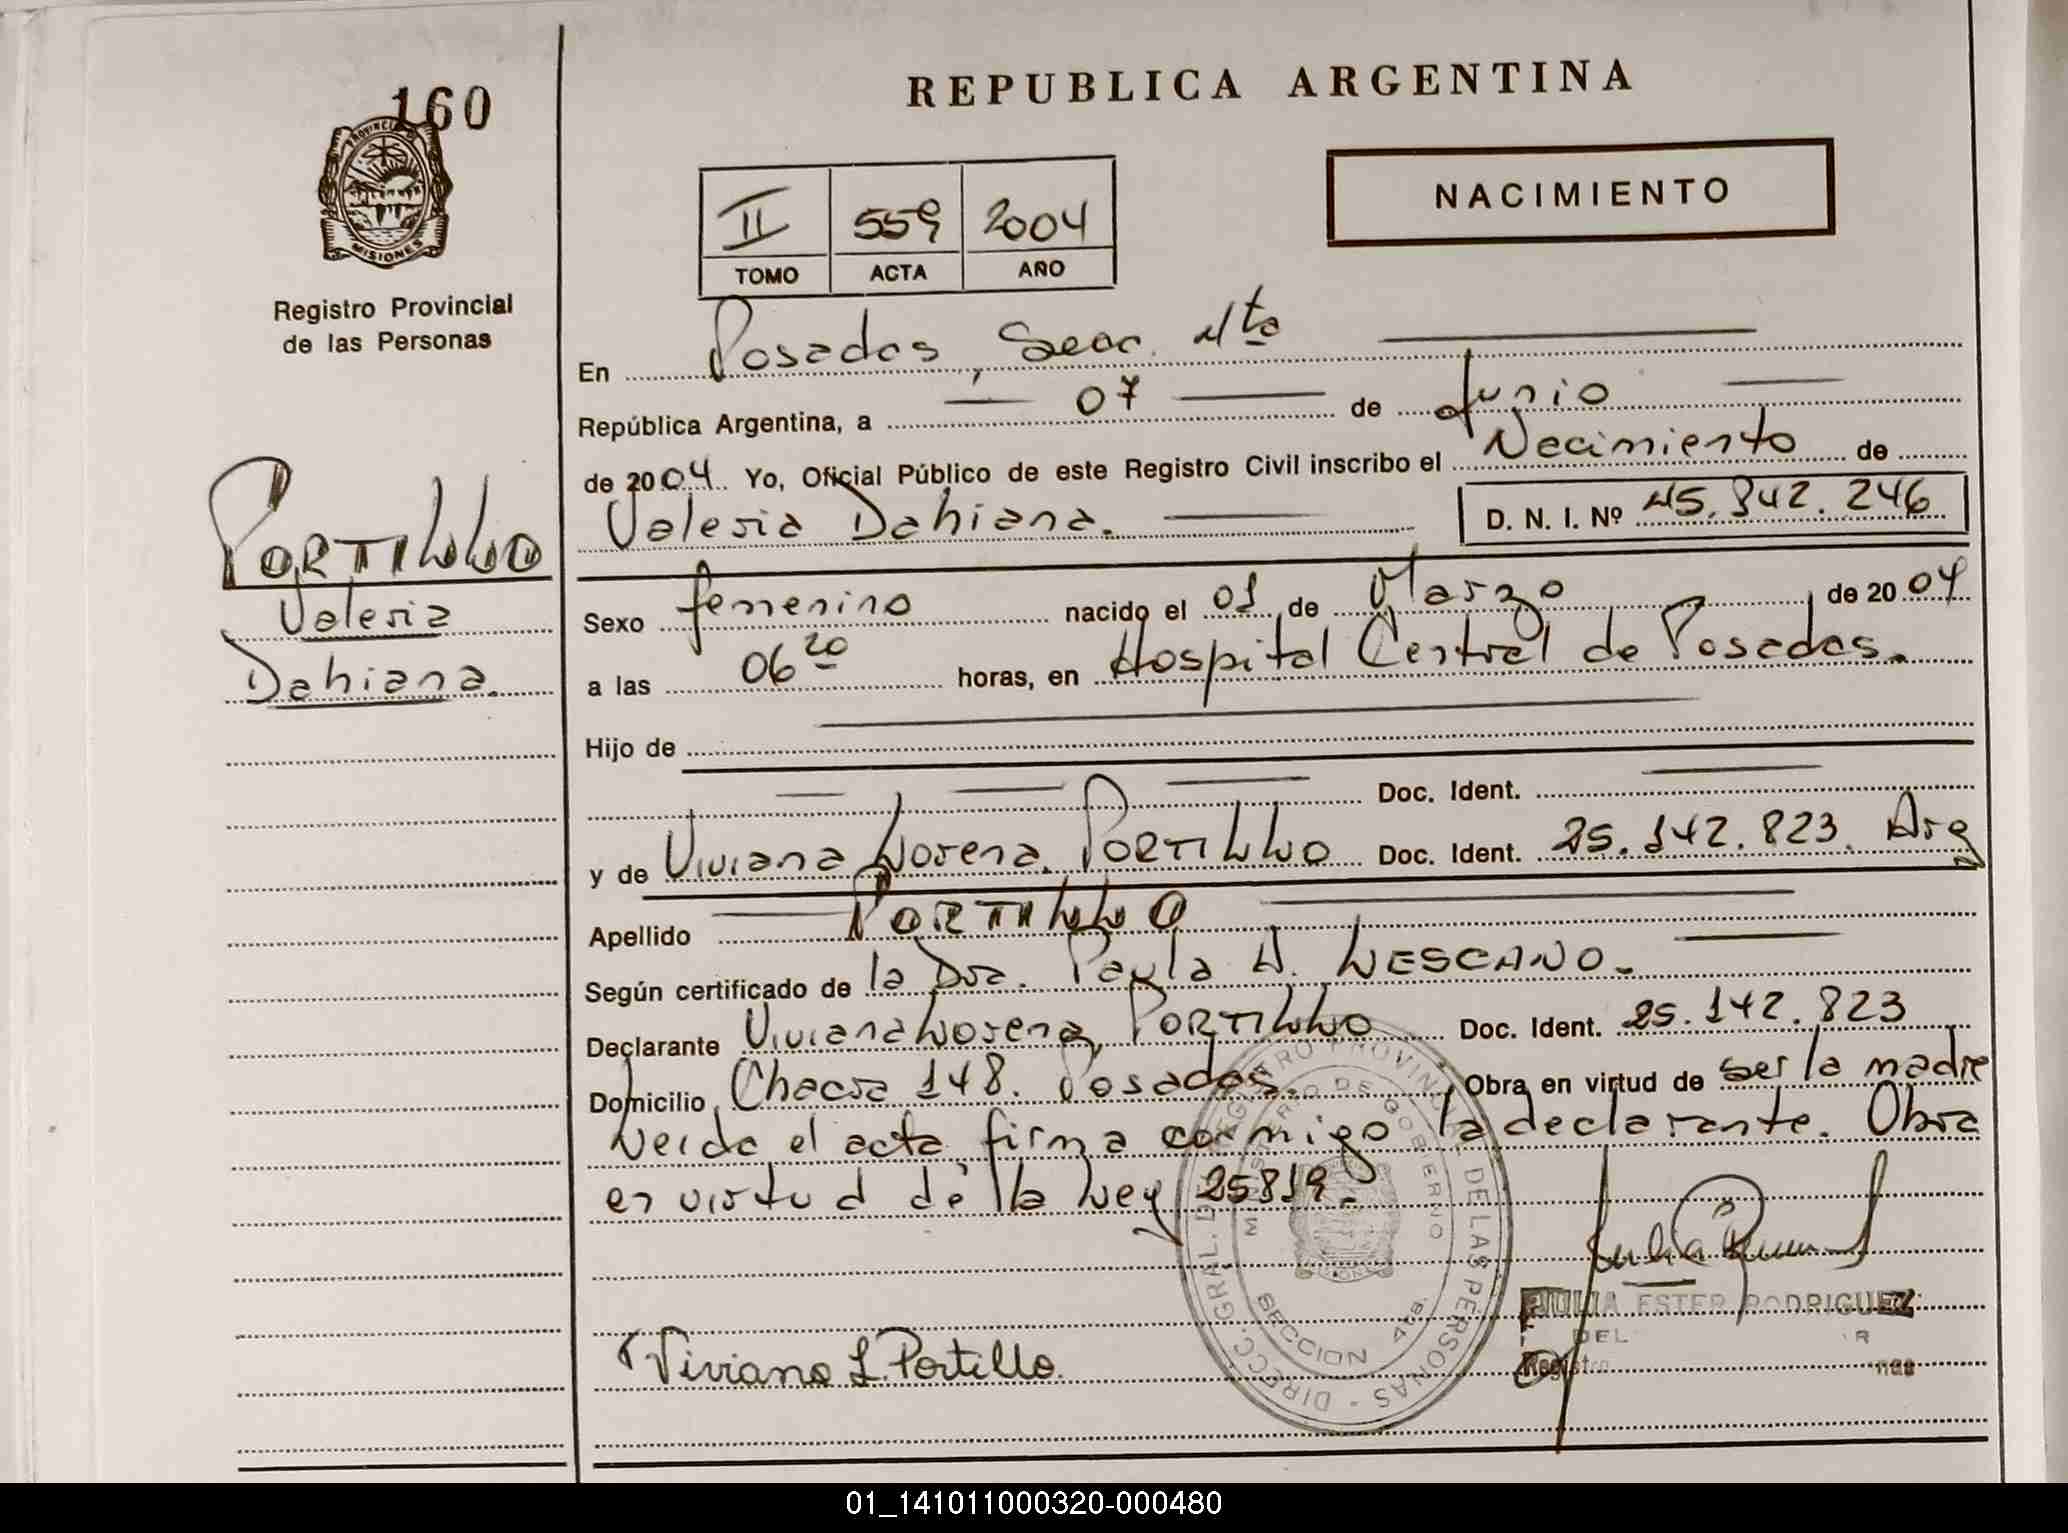 160
REPUBLICA ARGENTINA
PROVINCIA DE
MISIONES
Registro Provincial
de las Personas
NACIMIENTO
II 559 2004
TOMO ACTA AÑO
En Posadas, Secc. 4ta
República Argentina, a 07 de Junio
de 2004. Yo, Oficial Público de este Registro Civil inscribo el Nacimiento de
Valeria Dahiana. D. N. I. Nº 45.342.246
PORTILLO
Valeria
Dahiana.
Sexo femenino nacido el 01 de Marzo de 2004
a las 06 20 horas, en Hospital Central de Posadas.
Hijo de
Doc. Ident.
y de Viviana Lorena PORTILLO Doc. Ident. 25.142.823. Arg
Apellido PORTILLO
Según certificado de la Dra. Paula A. LESCANO.
Declarante Viviana Lorena PORTILLO Doc. Ident. 25.142.823
Domicilio Chacra 148. Posadas. Obra en virtud de ser la madre
Leida el acta, firma conmigo la declarante. Obra
en virtud de la Ley 25819.
DIRECC. GRAL. DEL REGISTRO PROVINCIAL DE LAS PERSONAS
MINISTERIO DE GOBIERNO
SECCION 4ta.
JULIA ESTER RODRIGUEZ
DEL
Registro
Viviana L. Portillo.
01_141011000320-000480